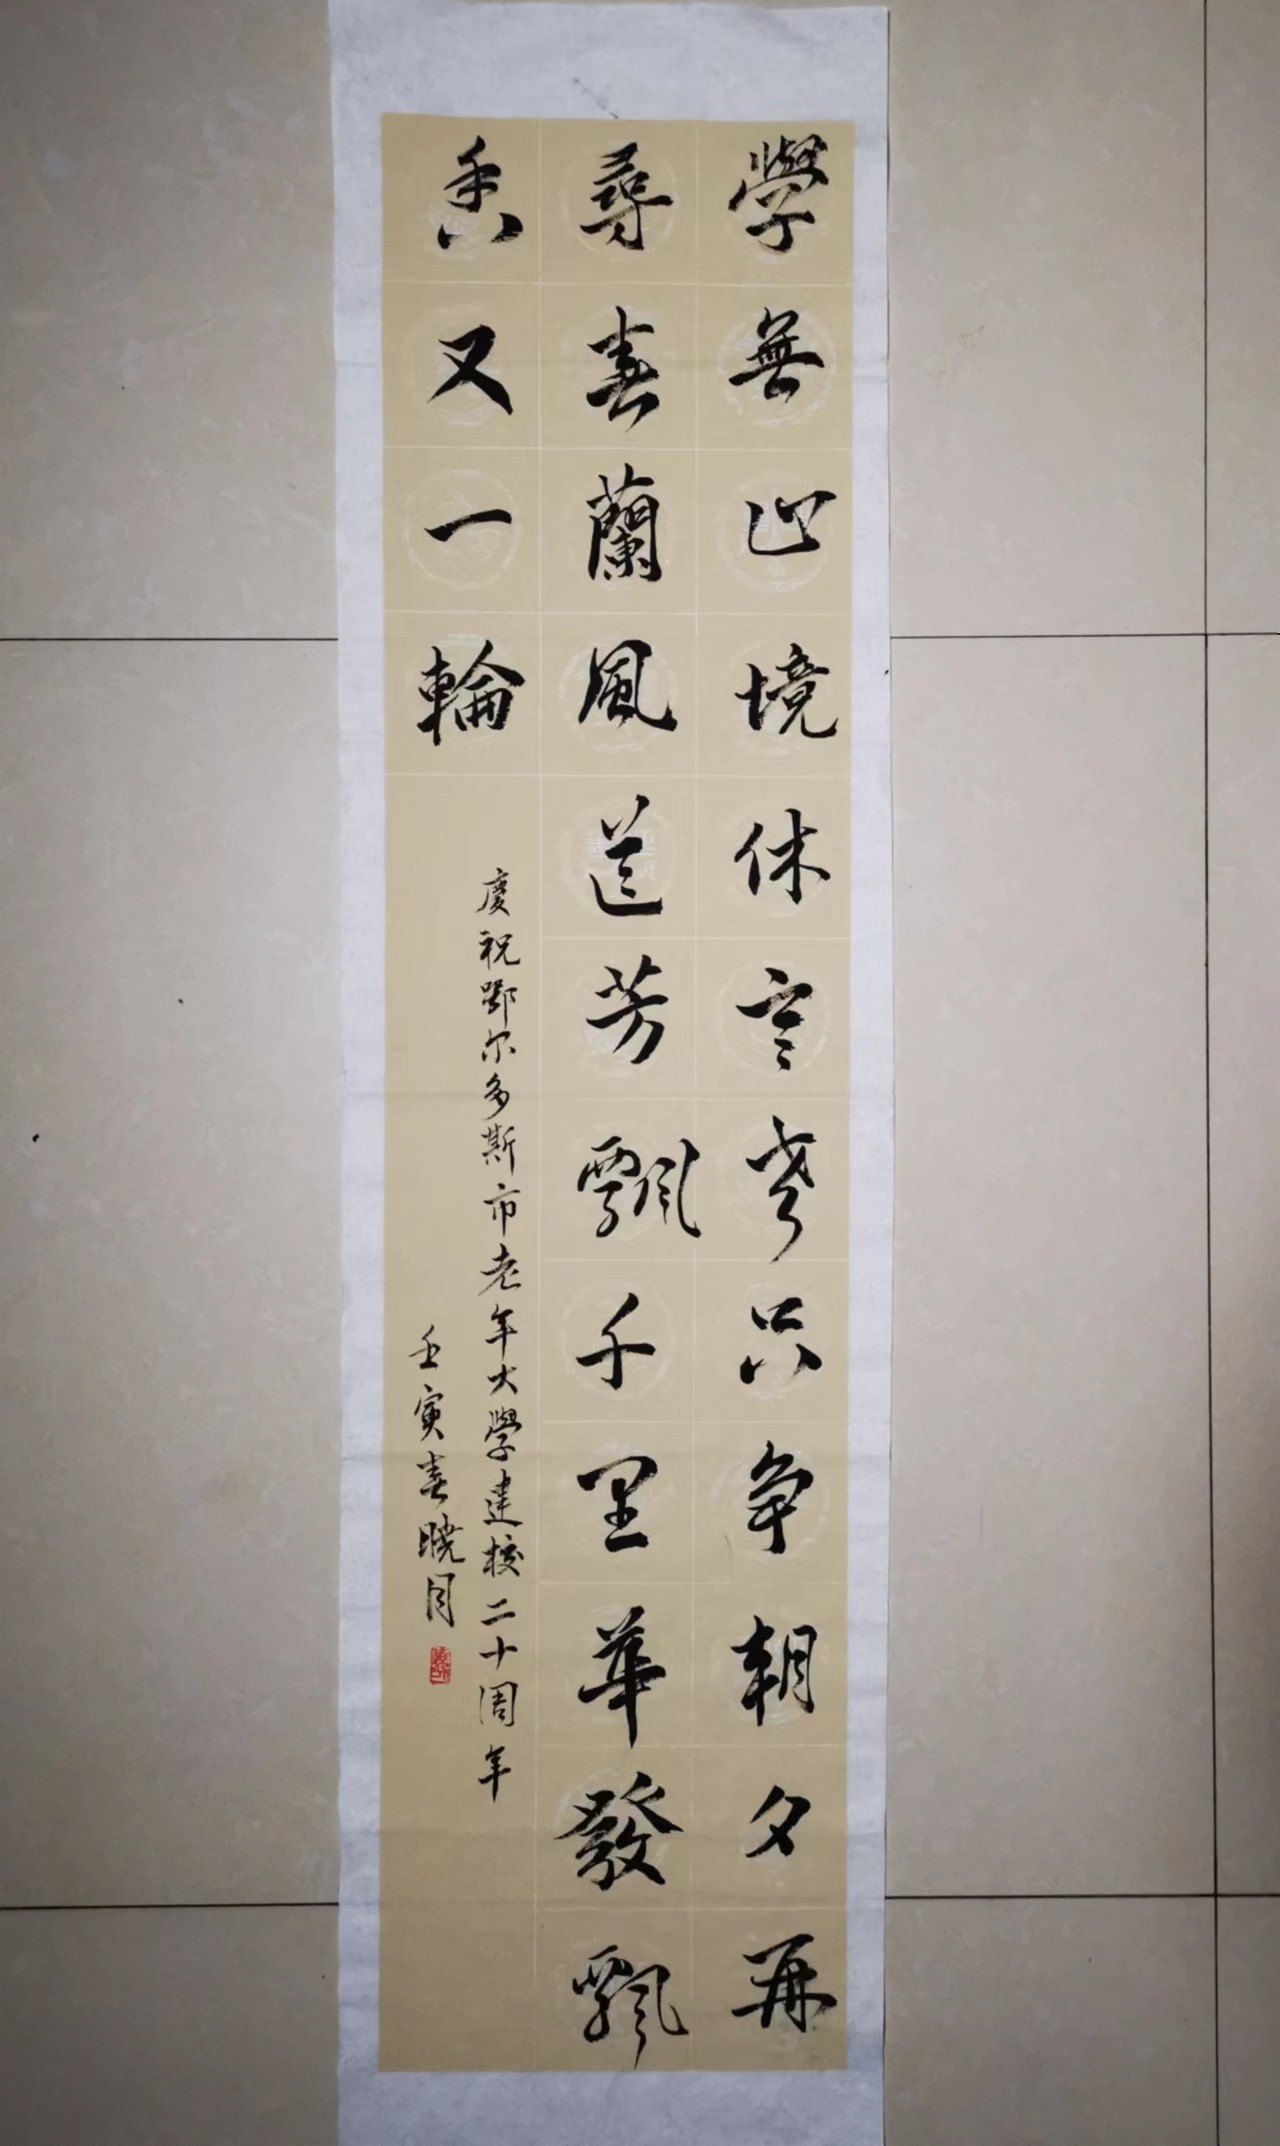 學無止境休言老只争朝夕再
尋春蘭風送芳飄千里華發飄
香又一輪
慶祝鄂尔多斯市老年大學建校二十周年
壬寅春曉月